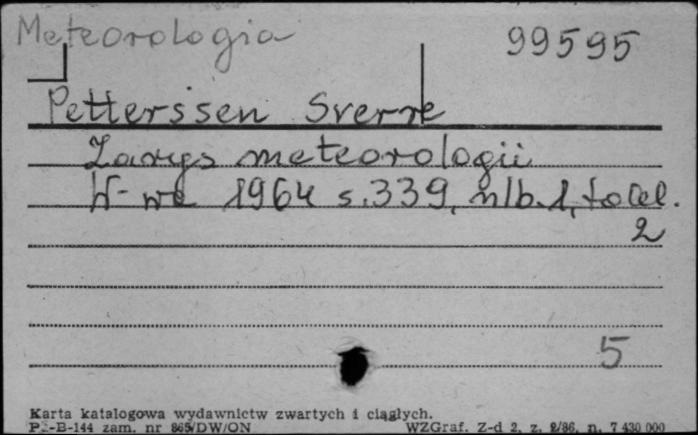 Meteorologia 99595
Petterssen Sverre
Zarys meteorologii
W-wa 1964 s.339, nlb.1, tabl.
2
5
Karta katalogowa wydawnictw zwartych i ciągłych.
Pu-B-144 zam. nr 865/DW/ON WZGraf. Z-d 2, z. 2/86, n. 7 430 000